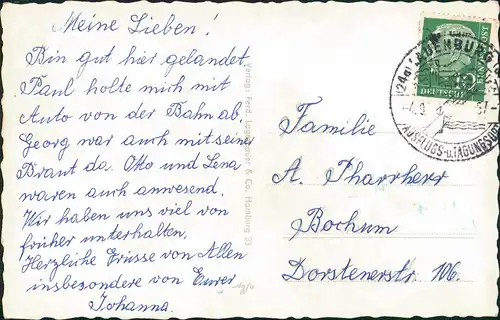 Meine Lieben!
Bin gut hier gelandet.
Paul holte mich mit
Auto von der Bahn ab.
Georg war auch mit seiner
Braut da. Otto und Lena
waren auch anwesend.
Wir haben uns viel von
früher unterhalten.
Herzliche Grüsse von Allen
insbesondere von Eurer
Johanna.
Verlag: Ferd. & Co., Hamburg 33
Agfa
Familie
A. Pharrherr
Bochum
Dorstenerstr. 106.
(24a) LAUENBURG
AUSFLUGS-u.TAGUNGS
10
DEUTSCHE
POST